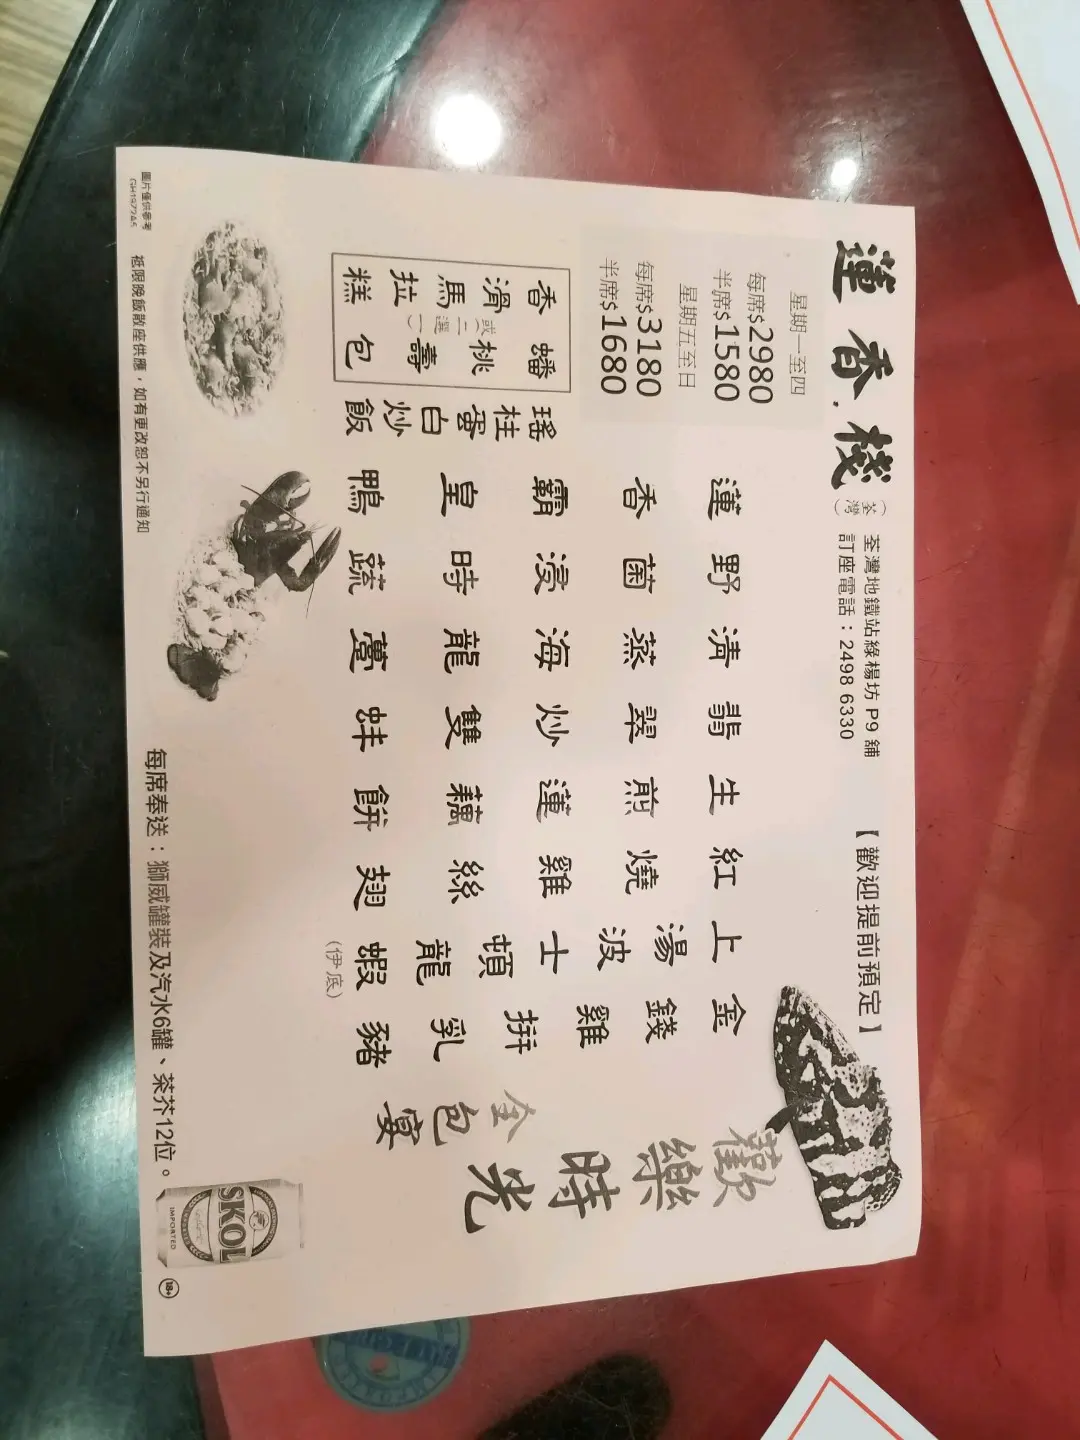 蓮香棧（荃灣）
荃灣地鐵站綠楊坊 P9 舖
訂座電話：2498 6330
【歡迎提前預定】
歡樂時光
全包宴
金錢雞拼乳豬
上湯波士頓龍蝦
(伊底)
紅燒雞絲翅
生煎蓮藕餅
翡翠炒雙蚌
清蒸海龍躉
野菌浸時蔬
蓮香霸皇鴨
瑤柱蛋白炒飯
蟠桃壽包
(或二選一)
香滑馬拉糕
星期一至四
每席$2980
半席$1580
星期五至日
每席$3180
半席$1680
圖片僅供參考
祗限晚飯散座供應，如有更改恕不另行通知
每席奉送：獅威罐裝及汽水6罐、茶芥12位。
SKOL
IMPORTED
18+